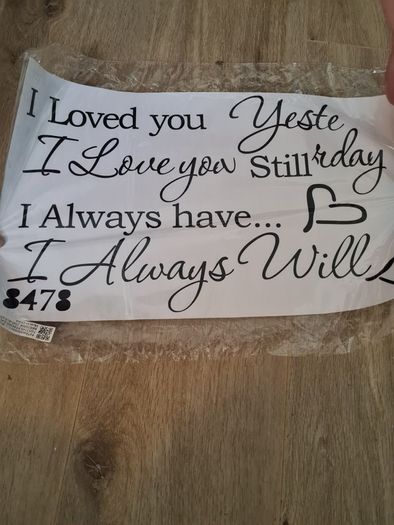 I Loved you Yeste
I Love you Still rday
I Always have...
I Always Will
8478